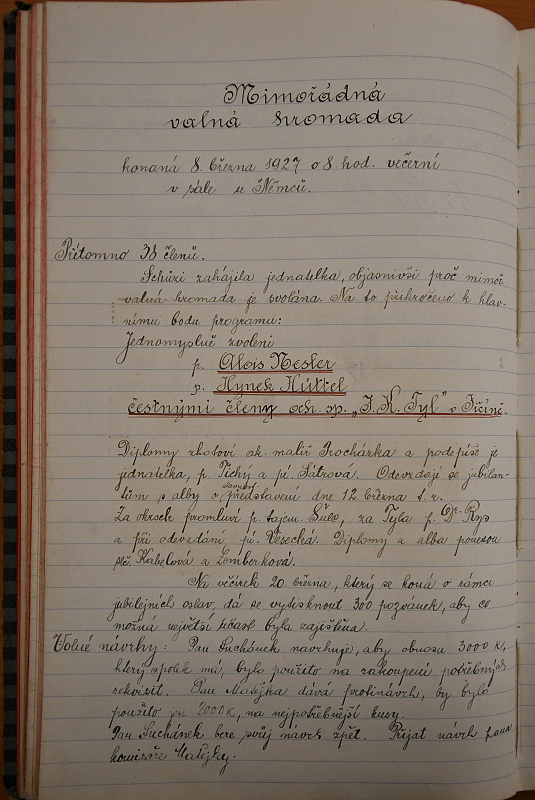 Mimořádná
valná hromada
konaná 8. března 1927 o 8. hod. večerní
v sále u Němců.
Přítomno 38 členů.
Schůzi zahájila jednatelka, objasnivši proč mimoř.
valná hromada je svolána. Na to přikročeno k hlav-
nímu bodu programu:
Jednomyslně zvoleni
p. Alois Nesler
p. Hynek Hüttel
čestnými členy och. sp. „J. K. Tyl" v Jičíně.
Diplomy zhotoví ak. malíř Procházka a podepíše je
jednatelka, p. Tichý a pí. Šátrová. Odevzdají se jubilan-
tům s alby o představení dne 12. března t. r.
Za okrsek promluví p. tajem. Šulc, za Tyla p. Dr. Rys
a při odevzdání pí. Resechá. Diplomy a alba ponesou
slč. Kabelová a Lemberková.
Na věčírek 20. března, který se koná v rámci
jubilejních oslav, dá se vytisknout 300 pozvánek, aby co
možná největší účast byla zajištěna.
Volné návrhy: Pan Suchánek navrhuje, aby obnosu 3000 K,
který spolek má, bylo použito na zakoupení potřebných
rekvisit. Pan Matějka dává protinávrh, by bylo
použito jen 2000 K, na nejpotřebnější kusy.
Pan Suchánek bere svůj návrh zpět. Přijat návrh pana
komisaře Matějky.